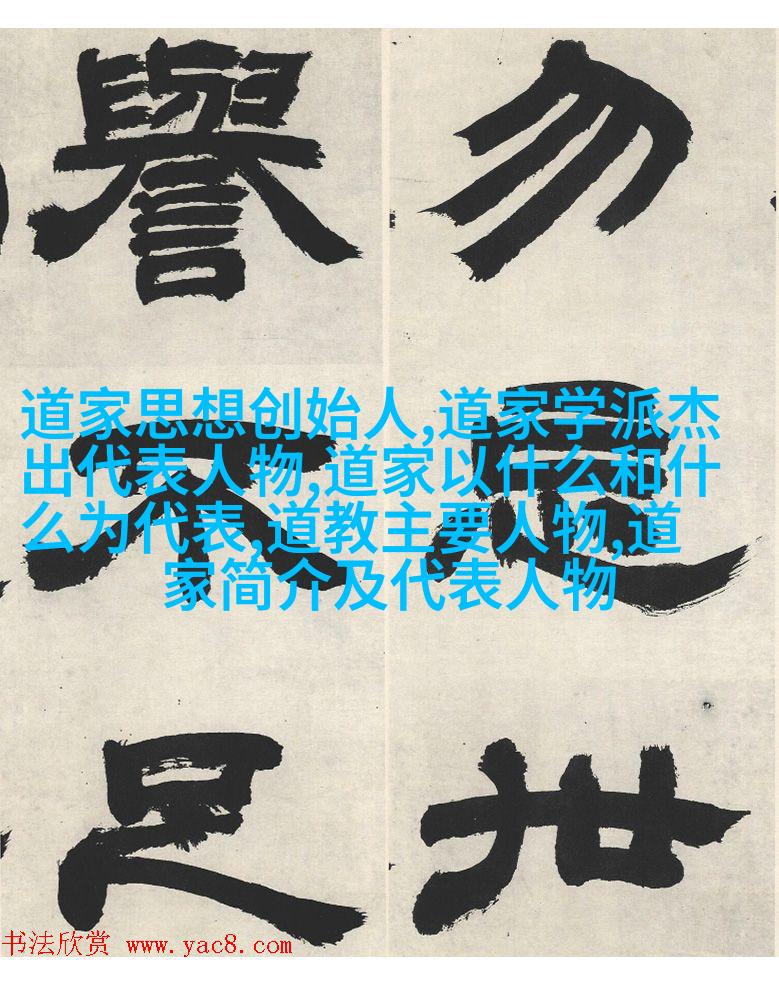 勿
世
譽不足
道家思想创始人,道家学派杰
出代表人物,道家以什么和什
么为代表,道教主要人物,道
家简介及代表人物
书法欣赏 www.yac8.com